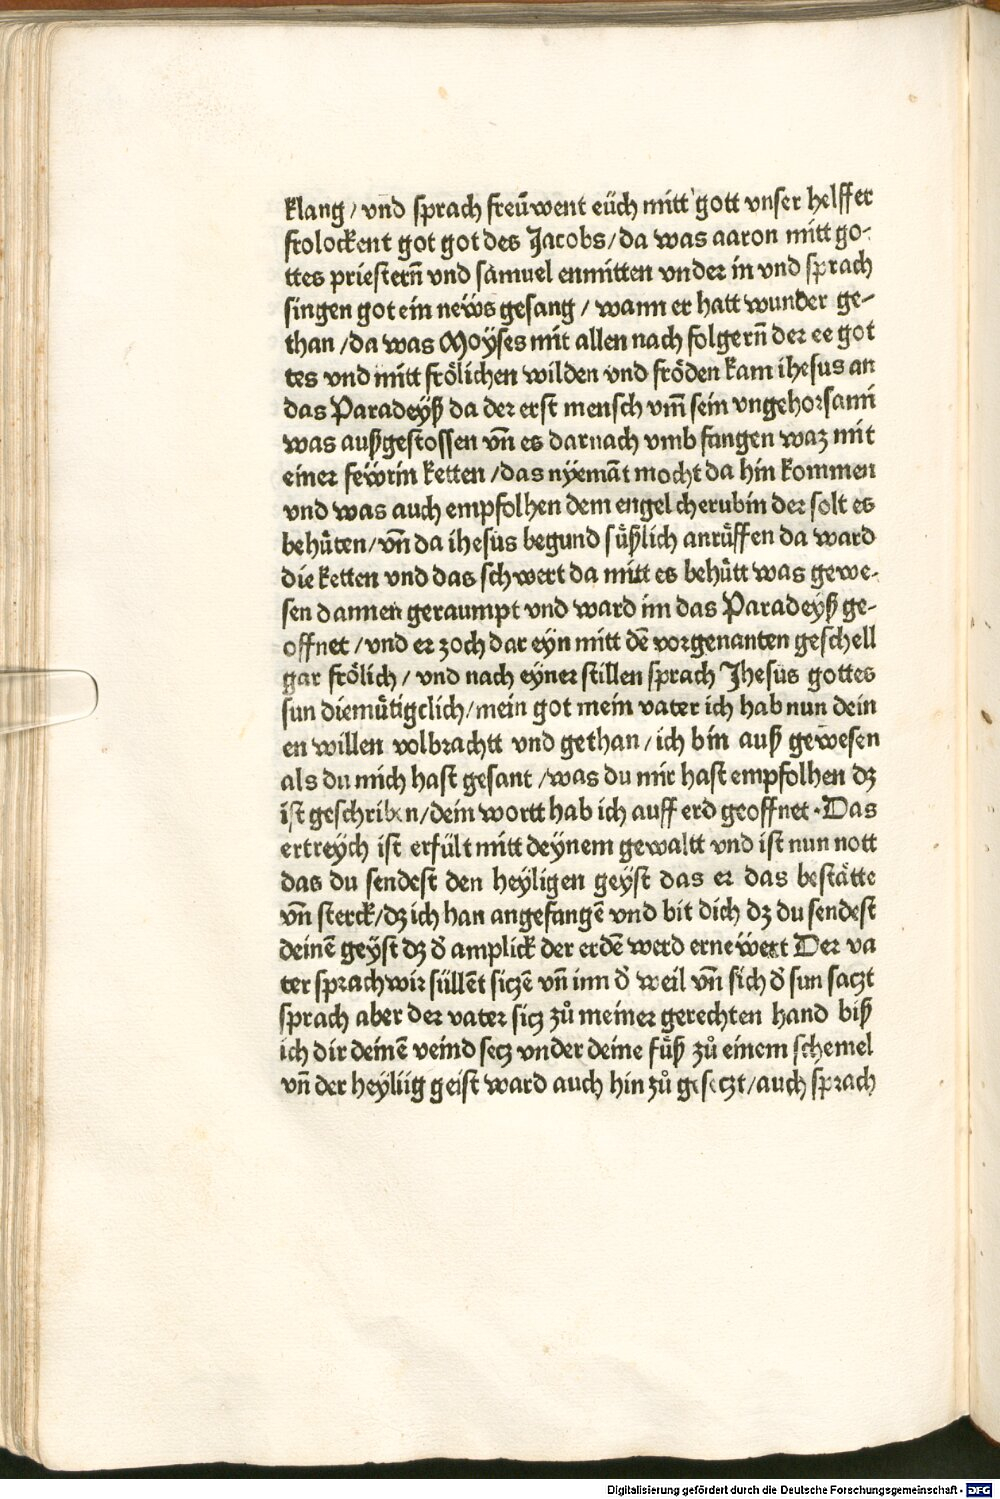 klang / vnd sprach freüwent eüch mitt gott vnser helffer
frolockent got got des Jacobs / da was aaron mitt go-
ttes priesterñ vnd samuel enmitten vnder in vnd sprach
singen got ein neẅs gesang / wann er hatt wunder ge-
than / da was Moÿses mit allen nach folgerñ der ee got
tes vnd mitt frölichen wilden vnd fröden kam ihesus an
das Paradeÿß da der erst mensch vm̄ sein vngehorsami
was außgestossen vn̄ es darnach vmb fangen waz mit
einer feẅrin ketten / das nÿemāt mocht da hin kommen
vnd was auch empfolhen dem engel cherubin der solt es
behuͤten / vn̄ da ihesus begund suͤßlich anruͤffen da ward
die ketten vnd das schwert da mitt es behuͤtt was gewe-
sen dannen geraumpt vnd ward im das Paradeÿß ge-
offnet / vnd er zoch dar eyn mitt dē vorgenanten geschell
gar frölich / vnd nach eÿner stillen sprach Jhesus gottes
sun diemuͤtigclich / mein got mein vater ich hab nun dein
en willen volbrachtt vnd gethan / ich bin auß gewesen
als du mich hast gesant / was du mir hast empfolhen dz
ist geschriben / dein wortt hab ich auff erd geoffnet · Das
ertreÿch ist erfült mitt deÿnem gewaltt vnd ist nun nott
das du sendest den heÿligen geÿst das er das bestätte
vn̄ sterck / dz ich han angefangē vnd bit dich dz du sendest
deinē geÿst dz d̄ amplick der erdē werd erneẅert Der va
ter sprach wir süllēt siczē vn̄ inn d̄ weil vn̄ sich d̄ sun saczt
sprach aber der vater sicz zuͦ meiner gerechten hand biß
ich dir deinē veind secz vnder deine fuͤß zuͦ einem schemel
vn̄ der heÿliig geist ward auch hin zuͦ gesetzt / auch sprach
Digitalisierung gefördert durch die Deutsche Forschungsgemeinschaft - DFG